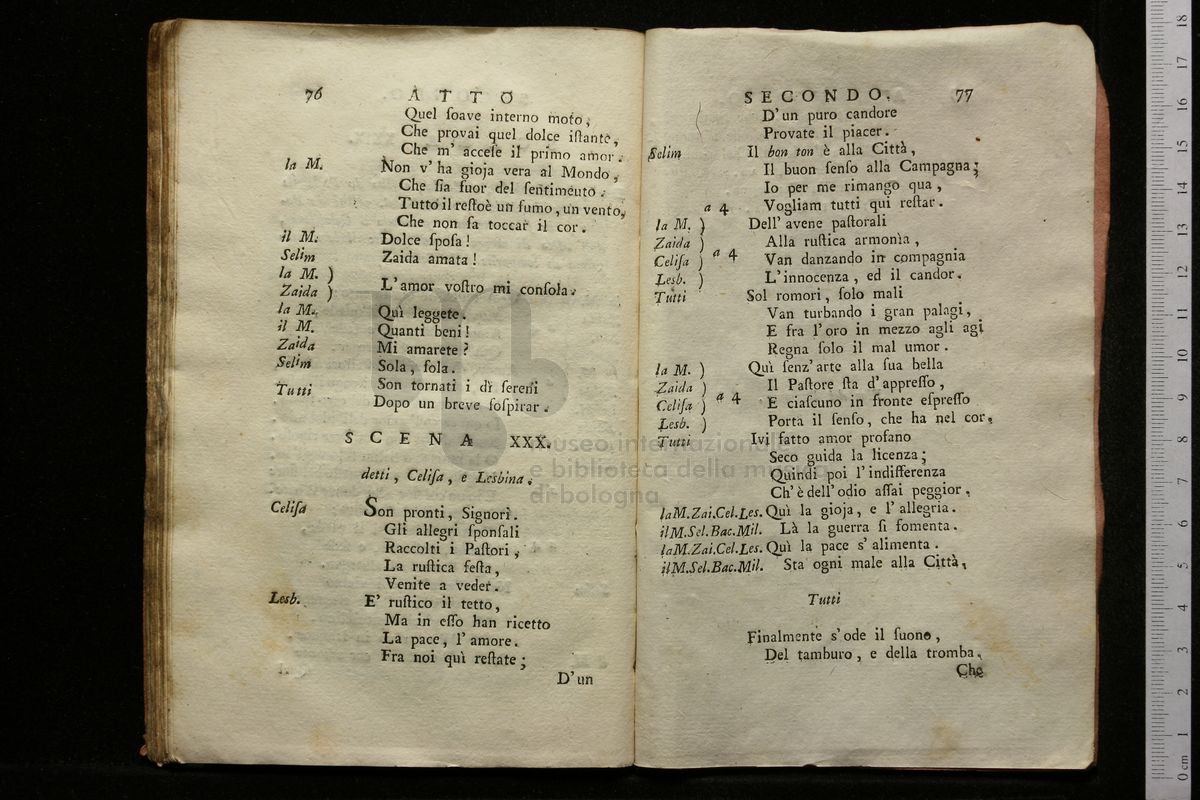 76 ATTO
Quel ſoave interno moto,
Che provai quel dolce iſtante,
Che m' acceſe il primo amor.
la M. Non v' ha gioja vera al Mondo,
Che ſia fuor del ſentimento.
Tutto il reſto è un fumo, un vento,
Che non ſa toccar il cor.
il M. Dolce ſpoſa!
Selim Zaida amata!
la M. )
Zaida ) L'amor voſtro mi conſola.
la M. Quì leggete.
il M. Quanti beni!
Zaida Mi amarete?
Selim Sola, ſola.
Tutti Son tornati i dì ſereni
Dopo un breve ſoſpirar.
SCENA XXX.
detti, Celiſa, e Lesbina.
Celiſa Son pronti, Signori.
Gli allegri ſponſali
Raccolti i Paſtori,
La ruſtica feſta,
Venite a veder.
Lesb. E' ruſtico il tetto,
Ma in eſſo han ricetto
La pace, l'amore.
Fra noi quì reſtate;
D'un
SECONDO. 77
D'un puro candore
Provate il piacer.
Selim Il bon ton è alla Città,
Il buon ſenſo alla Campagna;
Io per me rimango qua,
a 4 Vogliam tutti qui reſtar.
la M. ) Dell' avene paſtorali
Zaida ) Alla ruſtica armonìa,
Celiſa ) a 4 Van danzando in compagnia
Lesb. ) L'innocenza, ed il candor.
Tutti Sol romori, ſolo mali
Van turbando i gran palagi,
E fra l'oro in mezzo agli agi
Regna ſolo il mal umor.
la M. ) Quì ſenz' arte alla ſua bella
Zaida ) Il Paſtore ſta d'appreſſo,
Celiſa ) a 4 E ciaſcuno in fronte eſpreſſo
Lesb. ) Porta il ſenſo, che ha nel cor.
Tutti Ivi fatto amor profano
Seco guida la licenza;
Quindi poi l'indifferenza
Ch'è dell'odio aſſai peggior.
la M. Zai. Cel. Les. Quì la gioja, e l'allegria.
il M. Sel. Bac. Mil. Là la guerra ſi fomenta.
la M. Zai. Cel. Les. Quì la pace s'alimenta.
il M. Sel. Bac. Mil. Sta ogni male alla Città,
Tutti
Finalmente s'ode il ſuono,
Del tamburo, e della tromba.
Che
museo internazionale
e biblioteca della musica
di bologna
0 cm 1 2 3 4 5 6 7 8 9 10 11 12 13 14 15 16 17 18